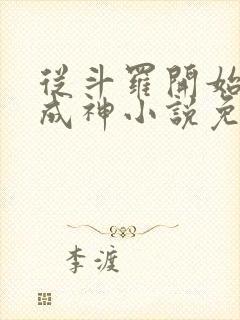 從斗羅開始
成神小說免
李渡